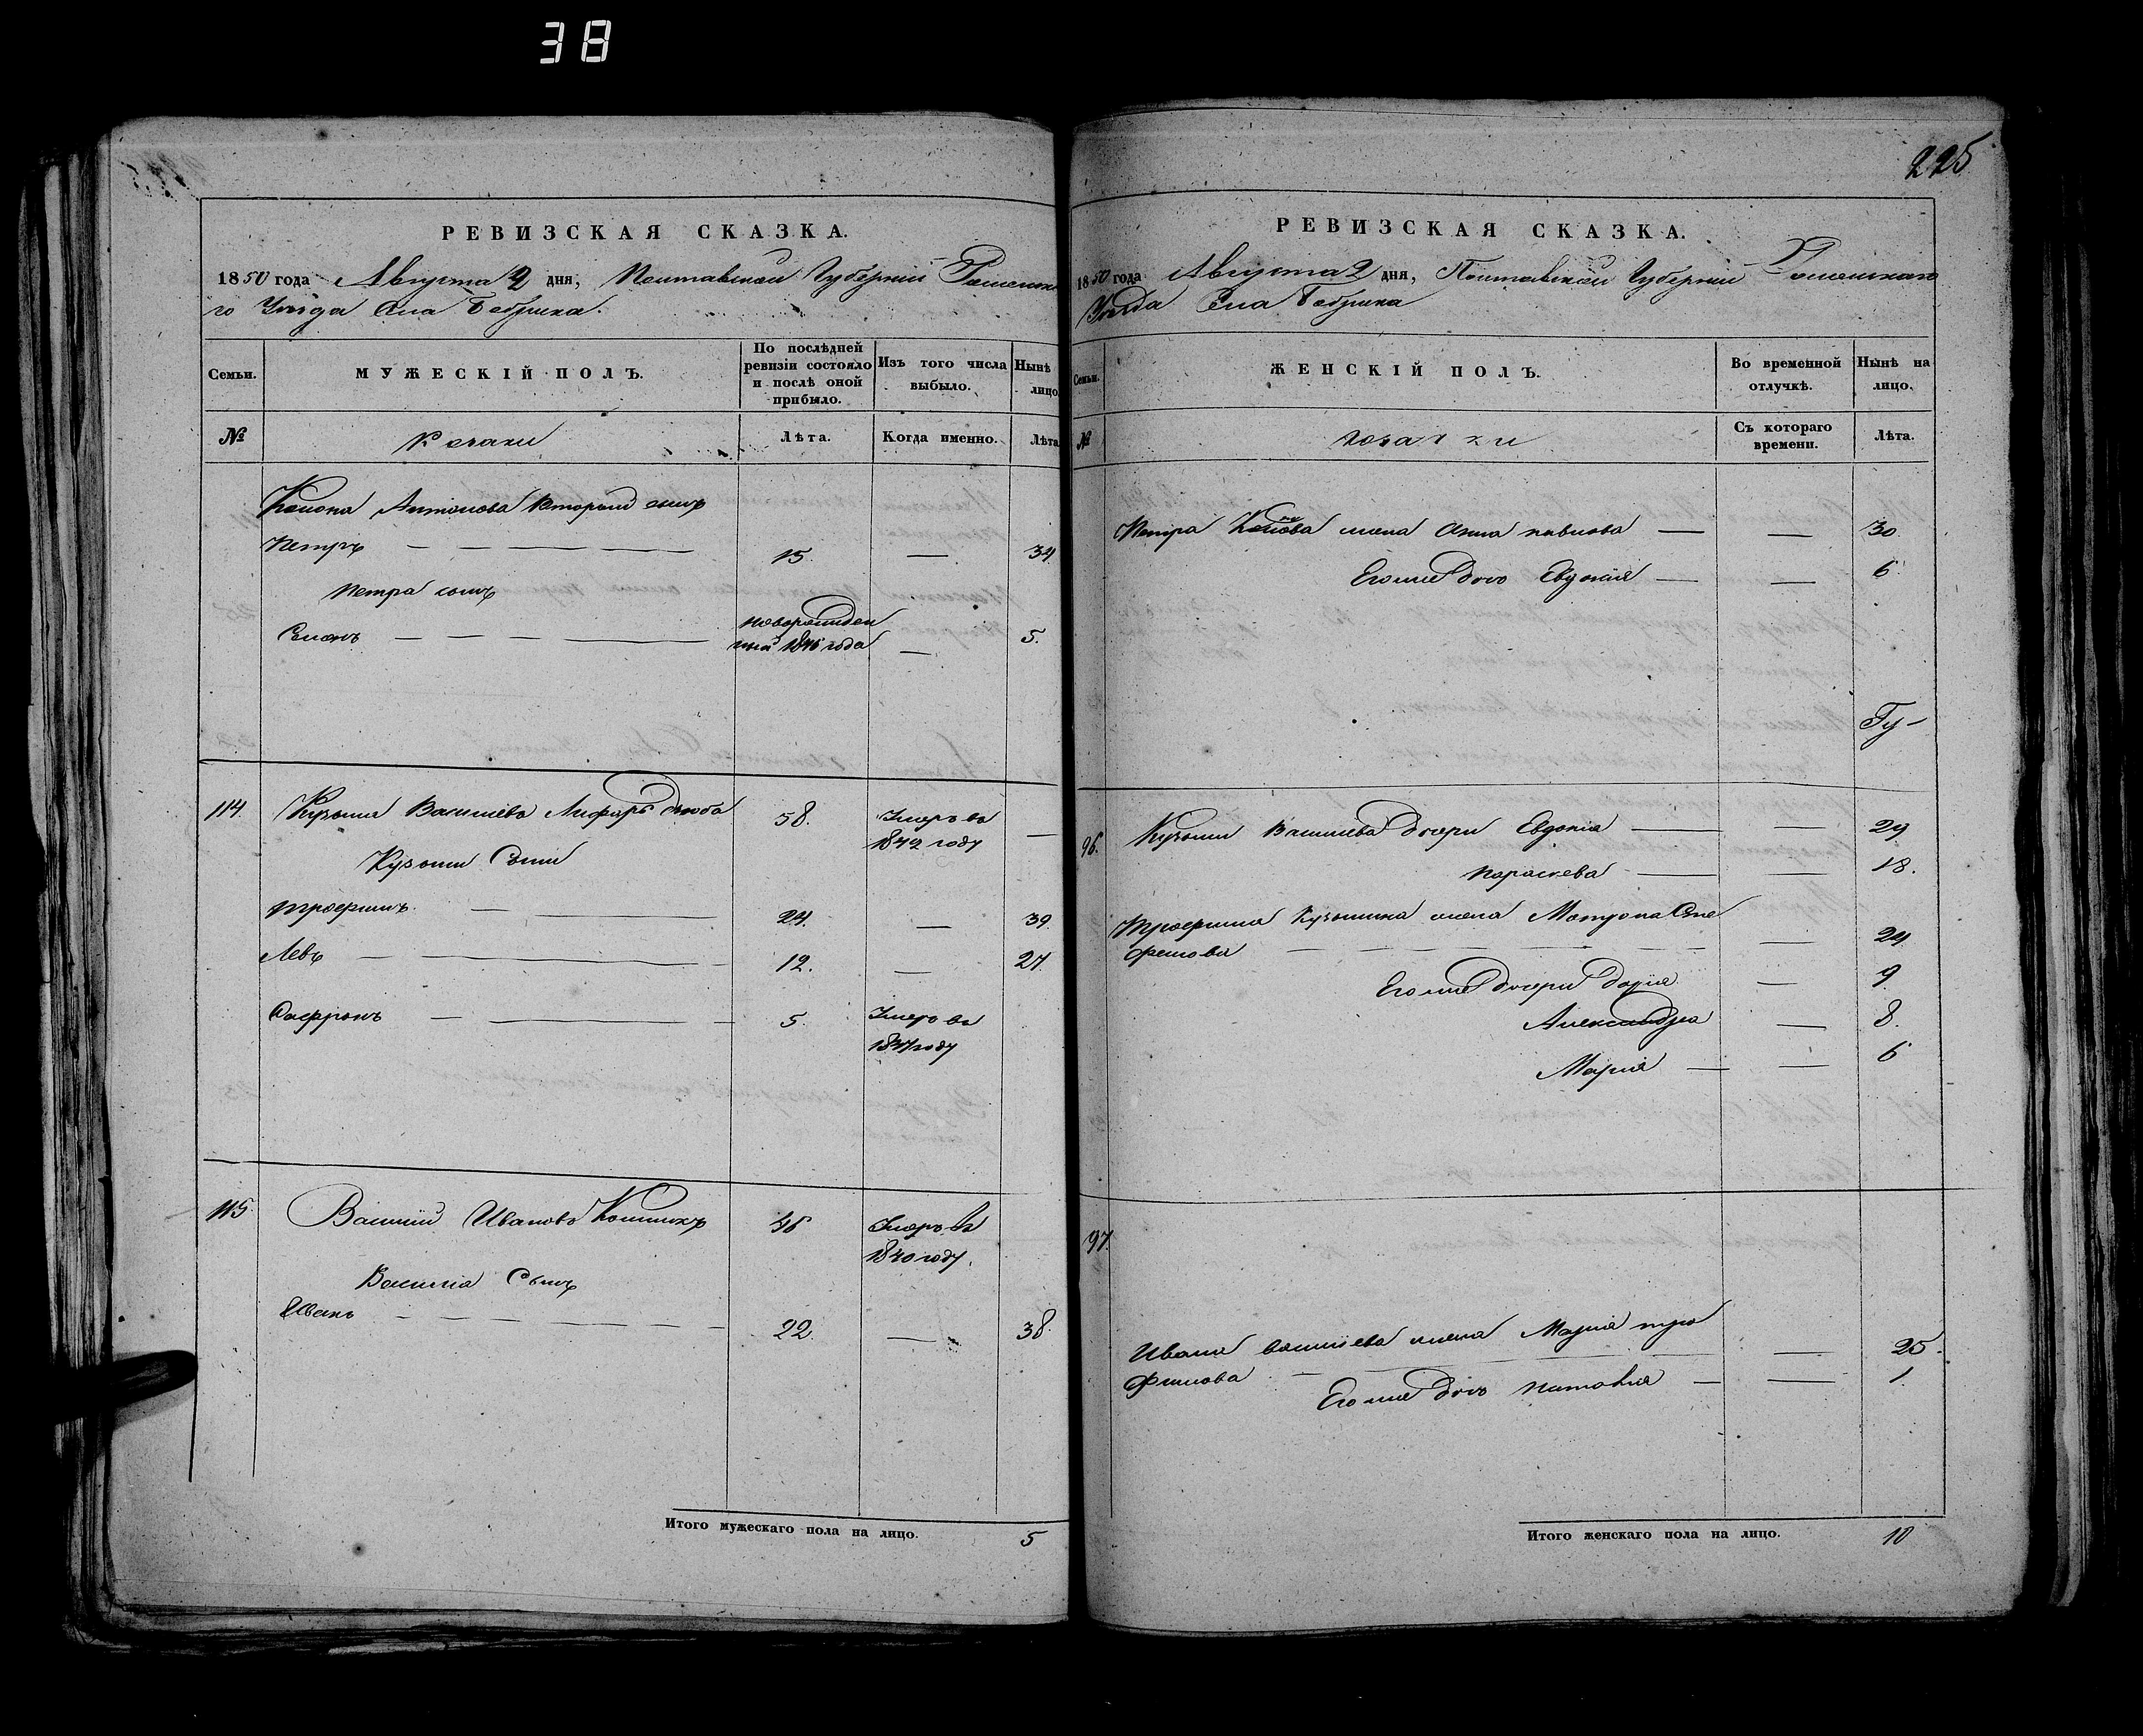 38
225
РЕВИЗСКАЯ СКАЗКА.
1850 года Августа 2 дня, Полтавской Губерніи Роменска
го Уѣзда Села Бобрика.
Семьи.
МУЖЕСКІЙ ПОЛЪ.
По послѣдней
ревизіи состояло
и послѣ оной
прибыло.
Изъ того числа
выбыло.
Нынѣ
лицо
№
Козаки
Лѣта.
Когда именно.
Лѣта
Конона Антонова второй сынъ
Петръ 15. 34
Петра сынъ
новорожден
ный 1845 года 5.
114. Кузьма Васильевъ 58. Умеръ въ
1842 году
Кузьмы Сыны
Трофимъ 24. 39.
Левъ 12. 27.
Сафронъ 5. Умеръ въ
1847 году
115. Василий Ивановъ 48 Умеръ въ
1840 году.
Василія Сынъ
Иванъ 22. 38.
Итого мужескаго пола на лицо. 5
РЕВИЗСКАЯ СКАЗКА.
1850 года Августа 2 дня, Полтавской Губерніи Роменскаго
Уѣзда Села Бобрика
Семьи.
ЖЕНСКІЙ ПОЛЪ.
Во временной
отлучкѣ.
Нынѣ на
лицо.
№
козачки
Съ котораго
времени.
Лѣта.
Петра жена Анна павлова 30
Егоже дочь Евдокія 6
96. Кузьмы Васильева дочери Евдокія 29
Параскева 18.
Трофима Кузьмина жена Матрона Сте
фанова 24
Егоже дочери Дарія 9
Александра 8.
Марія 6
97.
Ивана васильева жена Марія тро
фимова 25.
Егоже дочь Наталія 1
Итого женскаго пола на лицо. 10